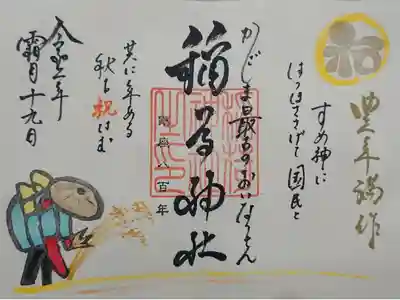 豊年満作
すめ神に
はつほさゝげて国民と
かごしま最古のおいなりさん
稲荷神社
八百年
共に年ある
秋を祝はむ
令和二年
霜月十九日